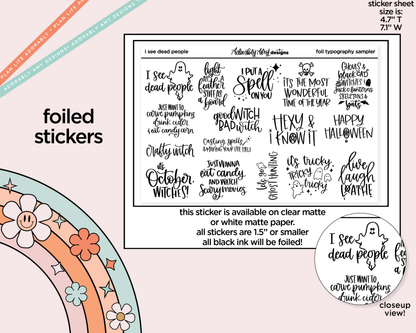 PLAN LIFE ADORABLY! ADORABLY AMY DESIGNS! PLAN LIFE ADORABLY!
sticker sheet
size is:
4.7" T
7.1" W
foiled
stickers
i see dead people
Adorably Amy Designs
foil typography sampler
I see
dead people
JUST WANT TO
carve pumpkins
drunk cider
& eat candy corn
Crafty witch
it's
October,
WITCHES!
light
as a
feather
STIFF AS
a board
good WITCH
BAD witch
Casting spells
JUST WANNA
eat candy
AND WATCH
Scary movies
I PUT A
Spell
ON YOU
let's go
GHOST HUNTING
IT'S THE MOST
WONDERFUL
TIME OF THE YEAR
HEXY &
I KNOW IT
it's tricky
TRICKY
tricky
Ghouls &
black CATS
WITCHES &
jack o'lanterns
SKELETONS &
bats
HAPPY
HALLOWEEN
live
laugh
LOATHE
this sticker is available on clear matte
or white matte paper.
all stickers are 1.5" or smaller
all black ink will be foiled!
I see
dead people
JUST WANT TO
carve pumpkins
drunk cider
closeup
view!